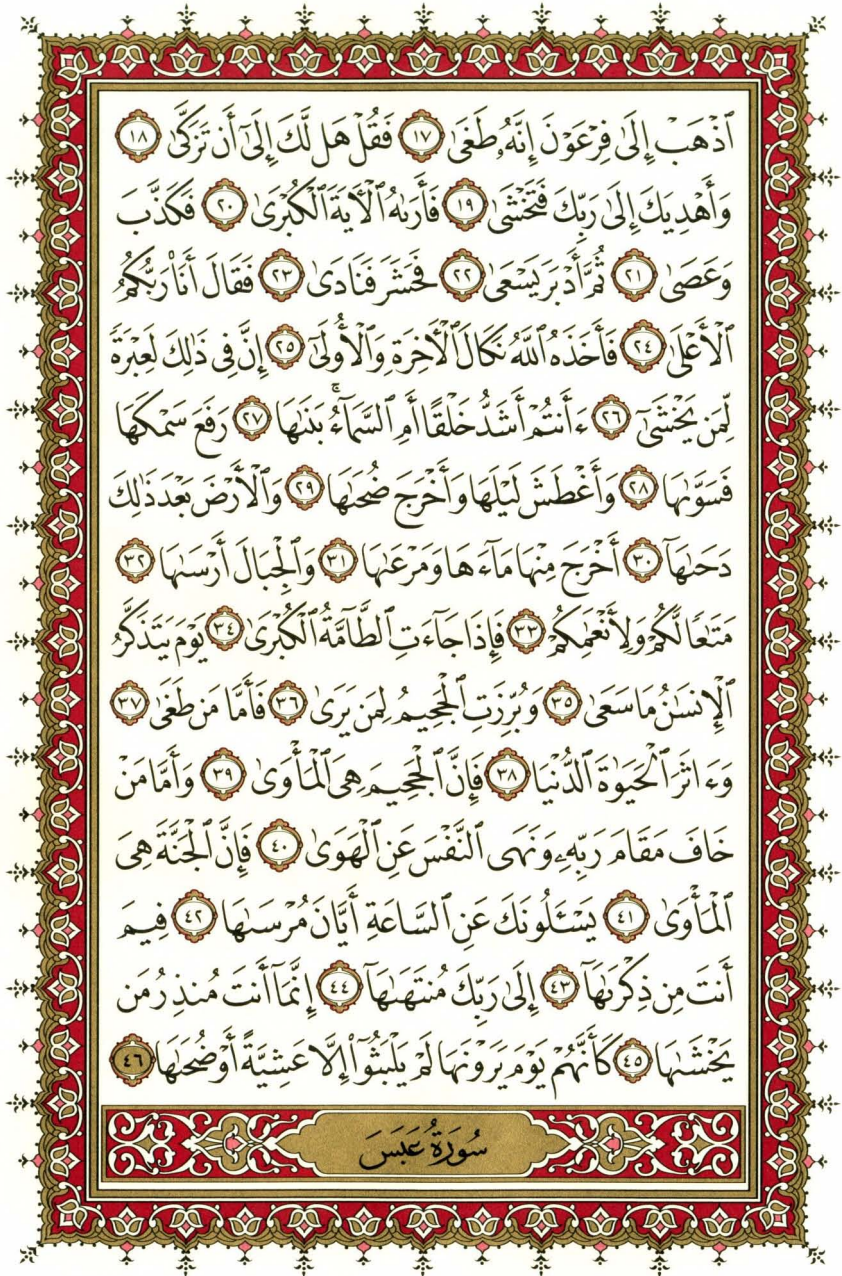 ٱذْهَبْ إِلَىٰ فِرْعَوْنَ إِنَّهُۥ طَغَىٰ ١٧ فَقُلْ هَل لَّكَ إِلَىٰٓ أَن تَزَكَّىٰ ١٨
وَأَهْدِيَكَ إِلَىٰ رَبِّكَ فَتَخْشَىٰ ١٩ فَأَرَىٰهُ ٱلْأٓيَةَ ٱلْكُبْرَىٰ ٢٠ فَكَذَّبَ
وَعَصَىٰ ٢١ ثُمَّ أَدْبَرَ يَسْعَىٰ ٢٢ فَحَشَرَ فَنَادَىٰ ٢٣ فَقَالَ أَنَا۠ رَبُّكُمُ
ٱلْأَعْلَىٰ ٢٤ فَأَخَذَهُ ٱللَّهُ نَكَالَ ٱلْأٓخِرَةِ وَٱلْأُولَىٰٓ ٢٥ إِنَّ فِى ذَٰلِكَ لَعِبْرَةً
لِّمَن يَخْشَىٰٓ ٢٦ ءَأَنتُمْ أَشَدُّ خَلْقًا أَمِ ٱلسَّمَآءُ ۚ بَنَىٰهَا ٢٧ رَفَعَ سَمْكَهَا
فَسَوَّىٰهَا ٢٨ وَأَغْطَشَ لَيْلَهَا وَأَخْرَجَ ضُحَىٰهَا ٢٩ وَٱلْأَرْضَ بَعْدَ ذَٰلِكَ
دَحَىٰهَآ ٣٠ أَخْرَجَ مِنْهَا مَآءَهَا وَمَرْعَىٰهَا ٣١ وَٱلْجِبَالَ أَرْسَىٰهَا ٣٢
مَتَٰعًا لَّكُمْ وَلِأَنْعَٰمِكُمْ ٣٣ فَإِذَا جَآءَتِ ٱلطَّآمَّةُ ٱلْكُبْرَىٰ ٣٤ يَوْمَ يَتَذَكَّرُ
ٱلْإِنسَٰنُ مَا سَعَىٰ ٣٥ وَبُرِّزَتِ ٱلْجَحِيمُ لِمَن يَرَىٰ ٣٦ فَأَمَّا مَن طَغَىٰ ٣٧
وَءَاثَرَ ٱلْحَيَوٰةَ ٱلدُّنْيَا ٣٨ فَإِنَّ ٱلْجَحِيمَ هِىَ ٱلْمَأْوَىٰ ٣٩ وَأَمَّا مَنْ
خَافَ مَقَامَ رَبِّهِۦ وَنَهَى ٱلنَّفْسَ عَنِ ٱلْهَوَىٰ ٤٠ فَإِنَّ ٱلْجَنَّةَ هِىَ
ٱلْمَأْوَىٰ ٤١ يَسْـَٔلُونَكَ عَنِ ٱلسَّاعَةِ أَيَّانَ مُرْسَىٰهَا ٤٢ فِيمَ
أَنتَ مِن ذِكْرَىٰهَآ ٤٣ إِلَىٰ رَبِّكَ مُنتَهَىٰهَآ ٤٤ إِنَّمَآ أَنتَ مُنذِرُ مَن
يَخْشَىٰهَا ٤٥ كَأَنَّهُمْ يَوْمَ يَرَوْنَهَا لَمْ يَلْبَثُوٓا۟ إِلَّا عَشِيَّةً أَوْ ضُحَىٰهَا ٤٦
سُورَةُ عَبَسَ